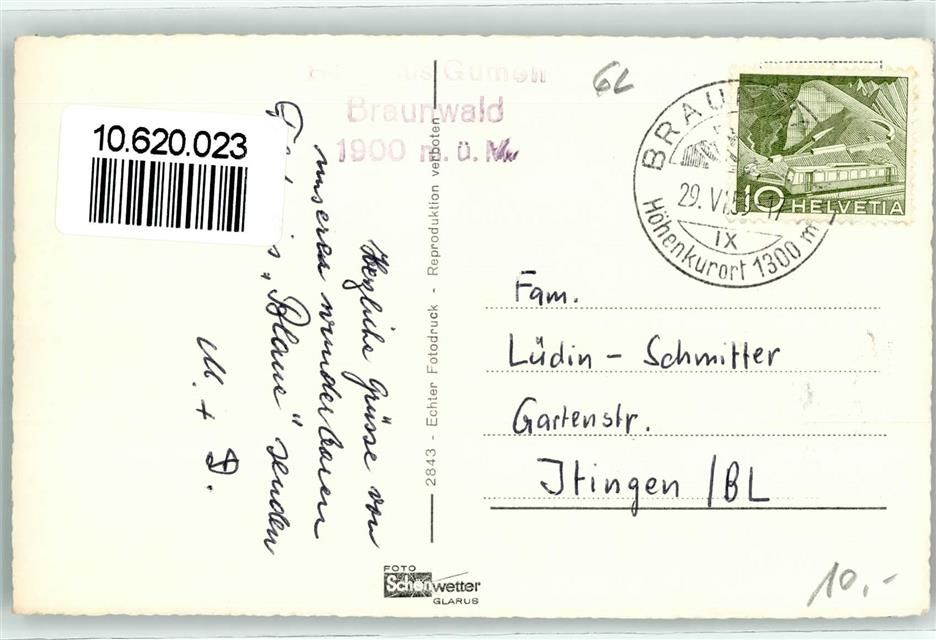 10.620.023
Gumen
Braunwald
1900 m.ü.M.
Herzliche Grüsse von
unseren wunderbaren
"Blaue" senden
M. + D.
2843 - Echter Fotodruck - Reproduktion verboten
FOTO
Schönwetter
GLARUS
GL
BRAU
29. VI. 59 - 17
IX
Höhenkurort 1300 m
10 HELVETIA
Fam.
Lüdin - Schmitter
Gartenstr.
Itingen / BL
10.-